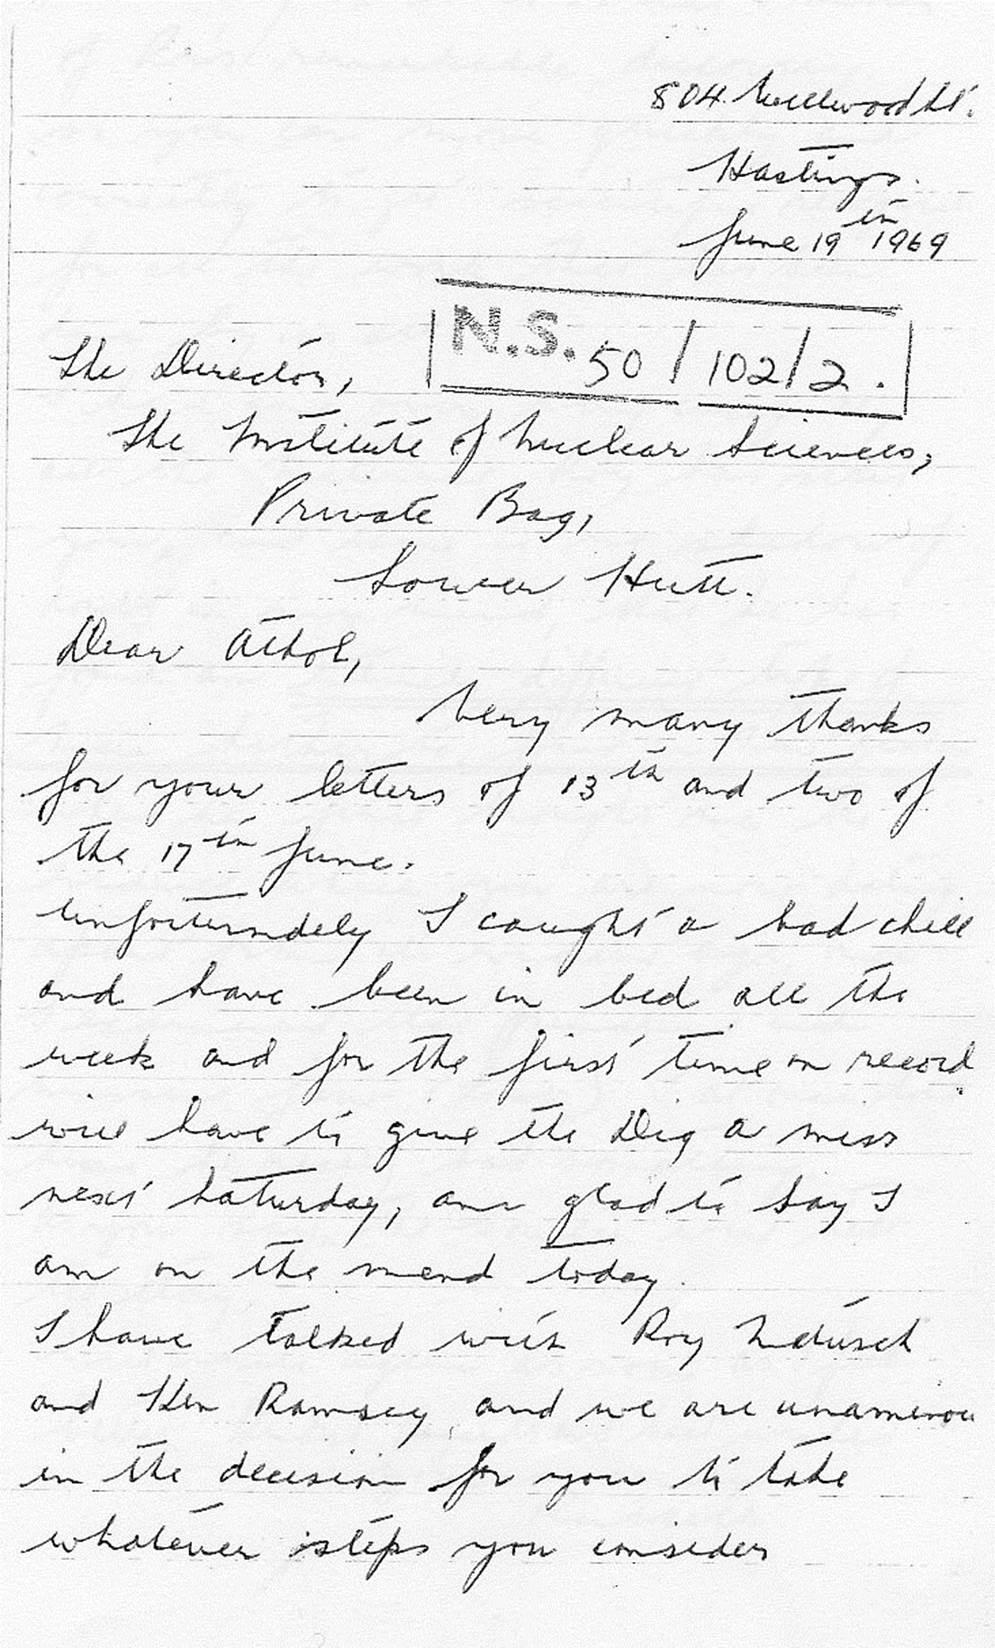 804 Wellwood St.
Hastings.
June 19th 1969
N.S. 50 / 102 / 2.
The Director,
The Institute of Nuclear Sciences,
Private Bag,
Lower Hutt.
Dear Athol,
Very many thanks
for your letters of 13th and two of
the 17th June.
Unfortunately I caught a bad chill
and have been in bed all the
week and for the first time on record
will have to give the Dig a miss
next Saturday, am glad to say I
am on the mend today.
I have talked with Roy
and Ken Ramsey, and we are
in the decision for you to take
whatever steps you consider